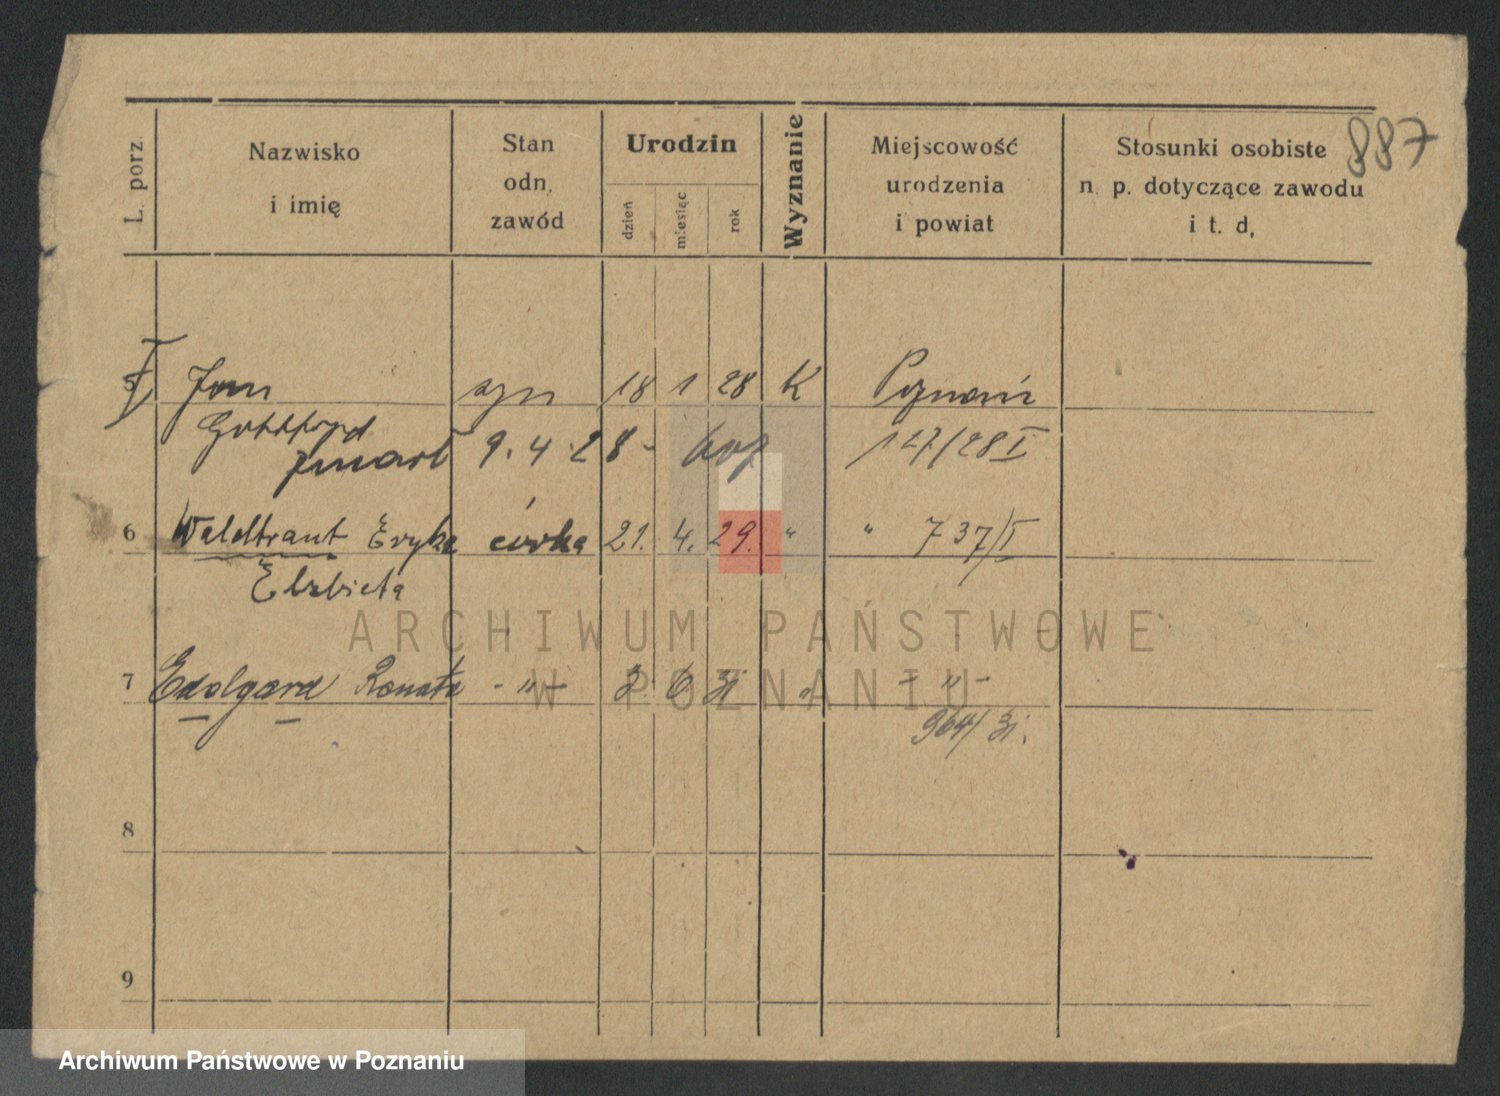 887
L. porz.
Nazwisko
i imię
Stan
odn.
zawód
Urodzin
dzień
miesiąc
rok
Wyznanie
Miejscowość
urodzenia
i powiat
Stosunki osobiste
n. p. dotyczące zawodu
i t. d.
5 Jan syn 18 1 28 K Poznań
zmarł 9.4.28- 127/28 I
6 Waldtraut Eryka córka 21. 4. 29. " " 737/I
Elżbieta
7 Edolgard Renata -"- 3. 6 31 " -"-
964/31.
8
9
ARCHIWUM PAŃSTWOWE
W POZNANIU
Archiwum Państwowe w Poznaniu